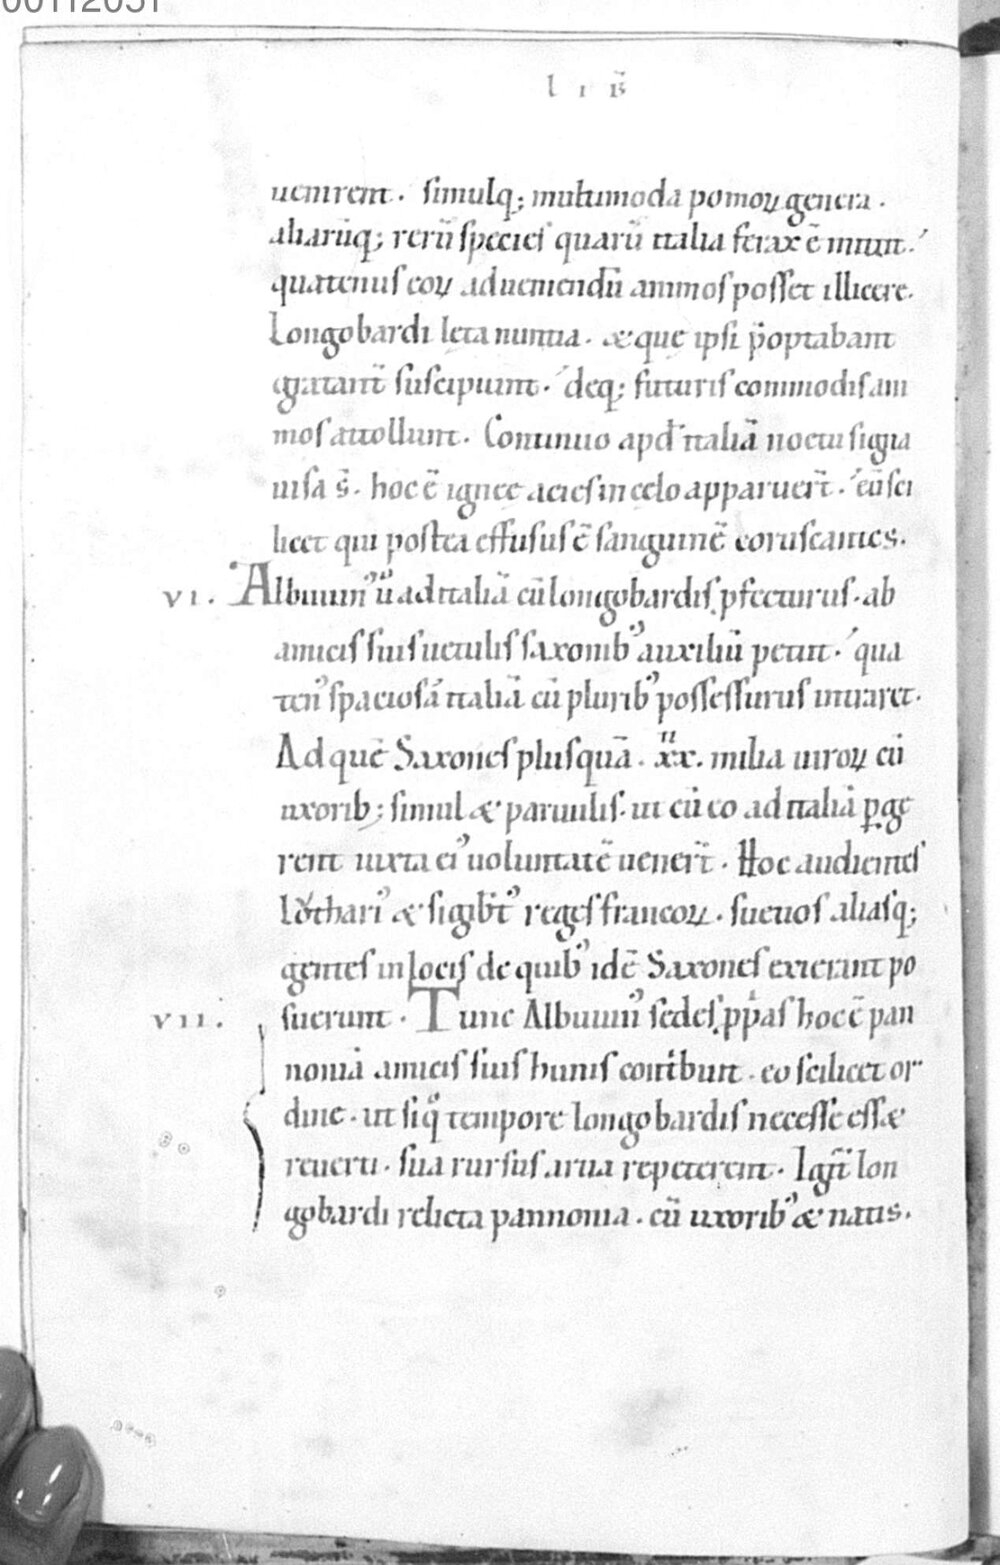 00112031
l i b̃
uenirent. simulq; multimoda pomoꝝ genera.
aliarūq; rerū species quarū italia ferax ē mitt.
quatenus eoꝝ adueniendū animos posset illicere.
Longobardi leta nuntia. & que ipsi p̄optabant
gratant̄ suscipiunt. deq; futuris commodis ani
mos attollunt. Continuo apđ italiā noctu signa
uisa s̄. hoc ē ignee acies in celo apparuer̄t. eū sci
licet qui postea effusus ē sanguinē coruscantes.
VI. Albuuin᾽ ů ad italiā cū longobardis ꝓfecturus. ab
amicis suis uetulis saxonib᾽ auxiliū petiit. qua
ten᾽ spaciosā italiā cū plurib᾽ possessurus intraret.
Ad quē Saxones plusquā. xx. milia uiroꝝ cū
uxorib; simul & paruulis. ut cū eo ad italiā ꝑge
rent iuxta ei᾽ uoluntatē uener̄t. Hoc audientes
lothari᾽ & sigib̄t᾽ reges francoꝝ. sueuos aliasq;
gentes in locis de quib᾽ idē Saxones exierant po
VII. suerunt. Tunc Albuuin᾽ sedes ꝓp͛as hoc ē pan
noniā amicis suis hunis cont͛buit. eo scilicet or
dine. ut siq͛ tempore longobardis necesse ess&
reuerti. sua rursus arua repeterent. Igit̄ lon
gobardi relicta pannonia. cū uxorib᾽ & natis.